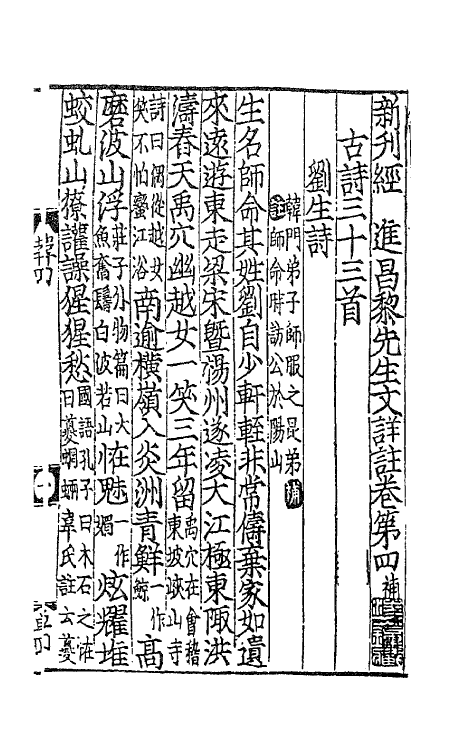 新刊經　進昌黎先生文詳註卷第四 補
古詩三十三首
劉生詩
韓門弟子師服之昆弟 補
註師命時訪公於陽山
生名師命其姓劉自少軒輊非常儔棄家如遺
來遠遊東走梁宋曁揚州遂凌大江極東陬洪
濤舂天禹穴幽越女一笑三年留 禹穴在會稽東坡峽山寺
詩曰偶從越女笑不怕蠻江浴 南逾橫嶺入炎洲青鯨 一作 高
磨波山浮 莊子外物篇曰大魚奮鬐白波若山 怪魅 一作 炫耀堆
蛟虬山獠讙譟猩猩愁 國語孔子曰木石之怪曰夔蝄蜽韋氏註云夔
韓四
一